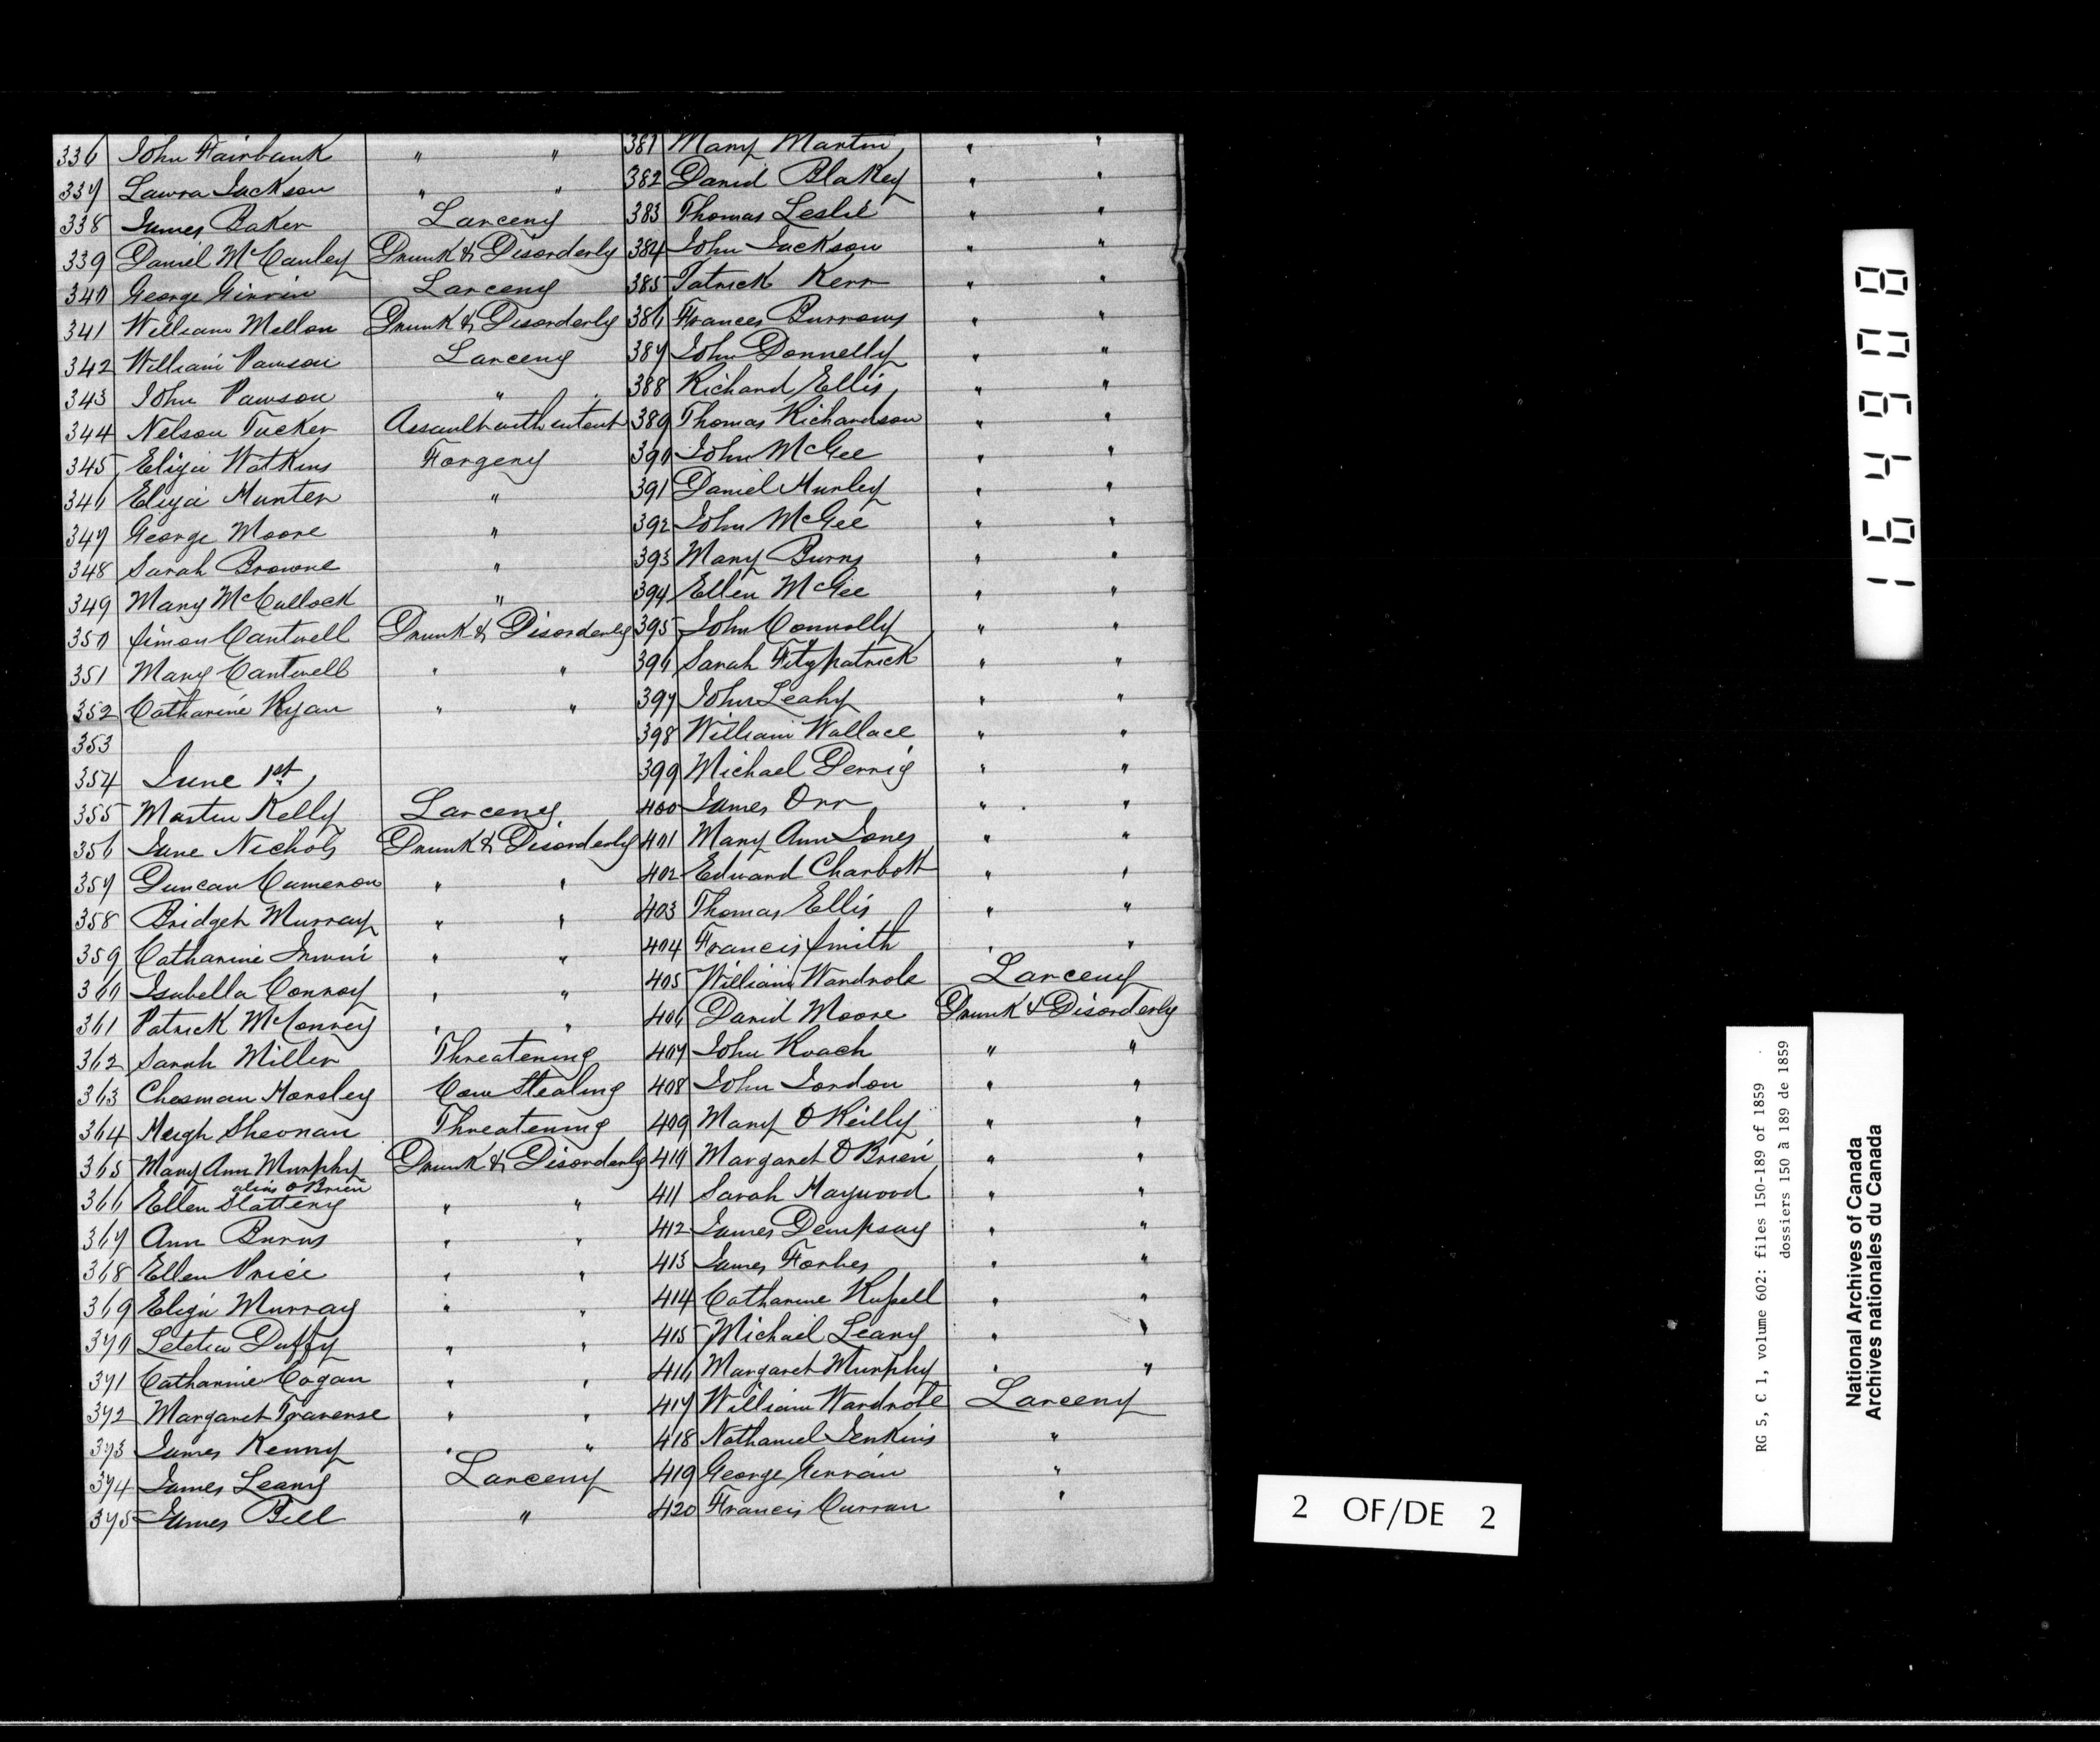 336 John Fairbank " "
337 Laura Jackson " "
338 James Baker Larceny
339 Daniel McCauley Drunk & Disorderly
340 George Girvin Larceny
341 William Mellon Drunk & Disorderly
342 William Pawson Larceny
343 John Pawson "
344 Nelson Tucker Assault with intent
345 Eliza Watkins Forgery
346 Eliza Hunter "
347 George Moore "
348 Sarah Browne "
349 Mary McCullock "
350 Simon Cantwell Drunk & Disorderly
351 Mary Cantwell " "
352 Catharine Ryan " "
353
354 June 1st
355 Martin Kelly Larceny
356 Jane Nichols Drunk & Disorderly
357 Duncan Cameron " "
358 Bridget Murray " "
359 Catharine Irwin " "
360 Isabella Conroy " "
361 Patrick McConvey " "
362 Sarah Miller Threatening
363 Chesman Horsley Cow Stealing
364 Hugh Sheonan Threatening
365 Mary Ann Murphy Drunk & Disorderly
alias O'Brien
366 Ellen Slattery " "
367 Ann Burns " "
368 Ellen Price " "
369 Eliza Murray " "
370 Letetia Duffy " "
371 Catharine Cogan " "
372 Margaret Traverse " "
373 James Kenny " "
374 James Leary Larceny
375 James Bell "
381 Mary Martin " "
382 David Blakey " "
383 Thomas Leslie " "
384 John Jackson " "
385 Patrick Kerr " "
386 Frances Burrows " "
387 John Donnelly " "
388 Richard Ellis " "
389 Thomas Richardson " "
390 John McGee " "
391 Daniel Hurley " "
392 John McGee " "
393 Mary Burns " "
394 Ellen McGee " "
395 John Connolly " "
396 Sarah Fitzpatrick " "
397 John Leahy " "
398 William Wallace " "
399 Michael Derrig " "
400 James Orr " "
401 Mary Ann Jones " "
402 Edward Charbott " "
403 Thomas Ellis " "
404 Francis Smith " "
405 William Wardrobe Larceny
406 David Moore Drunk & Disorderly
407 John Roach " "
408 John Jordon " "
409 Mary O'Reilly " "
410 Margaret O'Brien " "
411 Sarah Maywood " "
412 James Dempsay " "
413 James Forbes " "
414 Catharine Russell " "
415 Michael Leary " "
416 Margaret Murphy " "
417 William Wardrobe Larceny
418 Nathaniel Jenkins "
419 George Girvan "
420 Francis Curran "
2 OF/DE 2
164908
RG 5, C 1, volume 602: files 150-189 of 1859
dossiers 150 à 189 de 1859
National Archives of Canada
Archives nationales du Canada